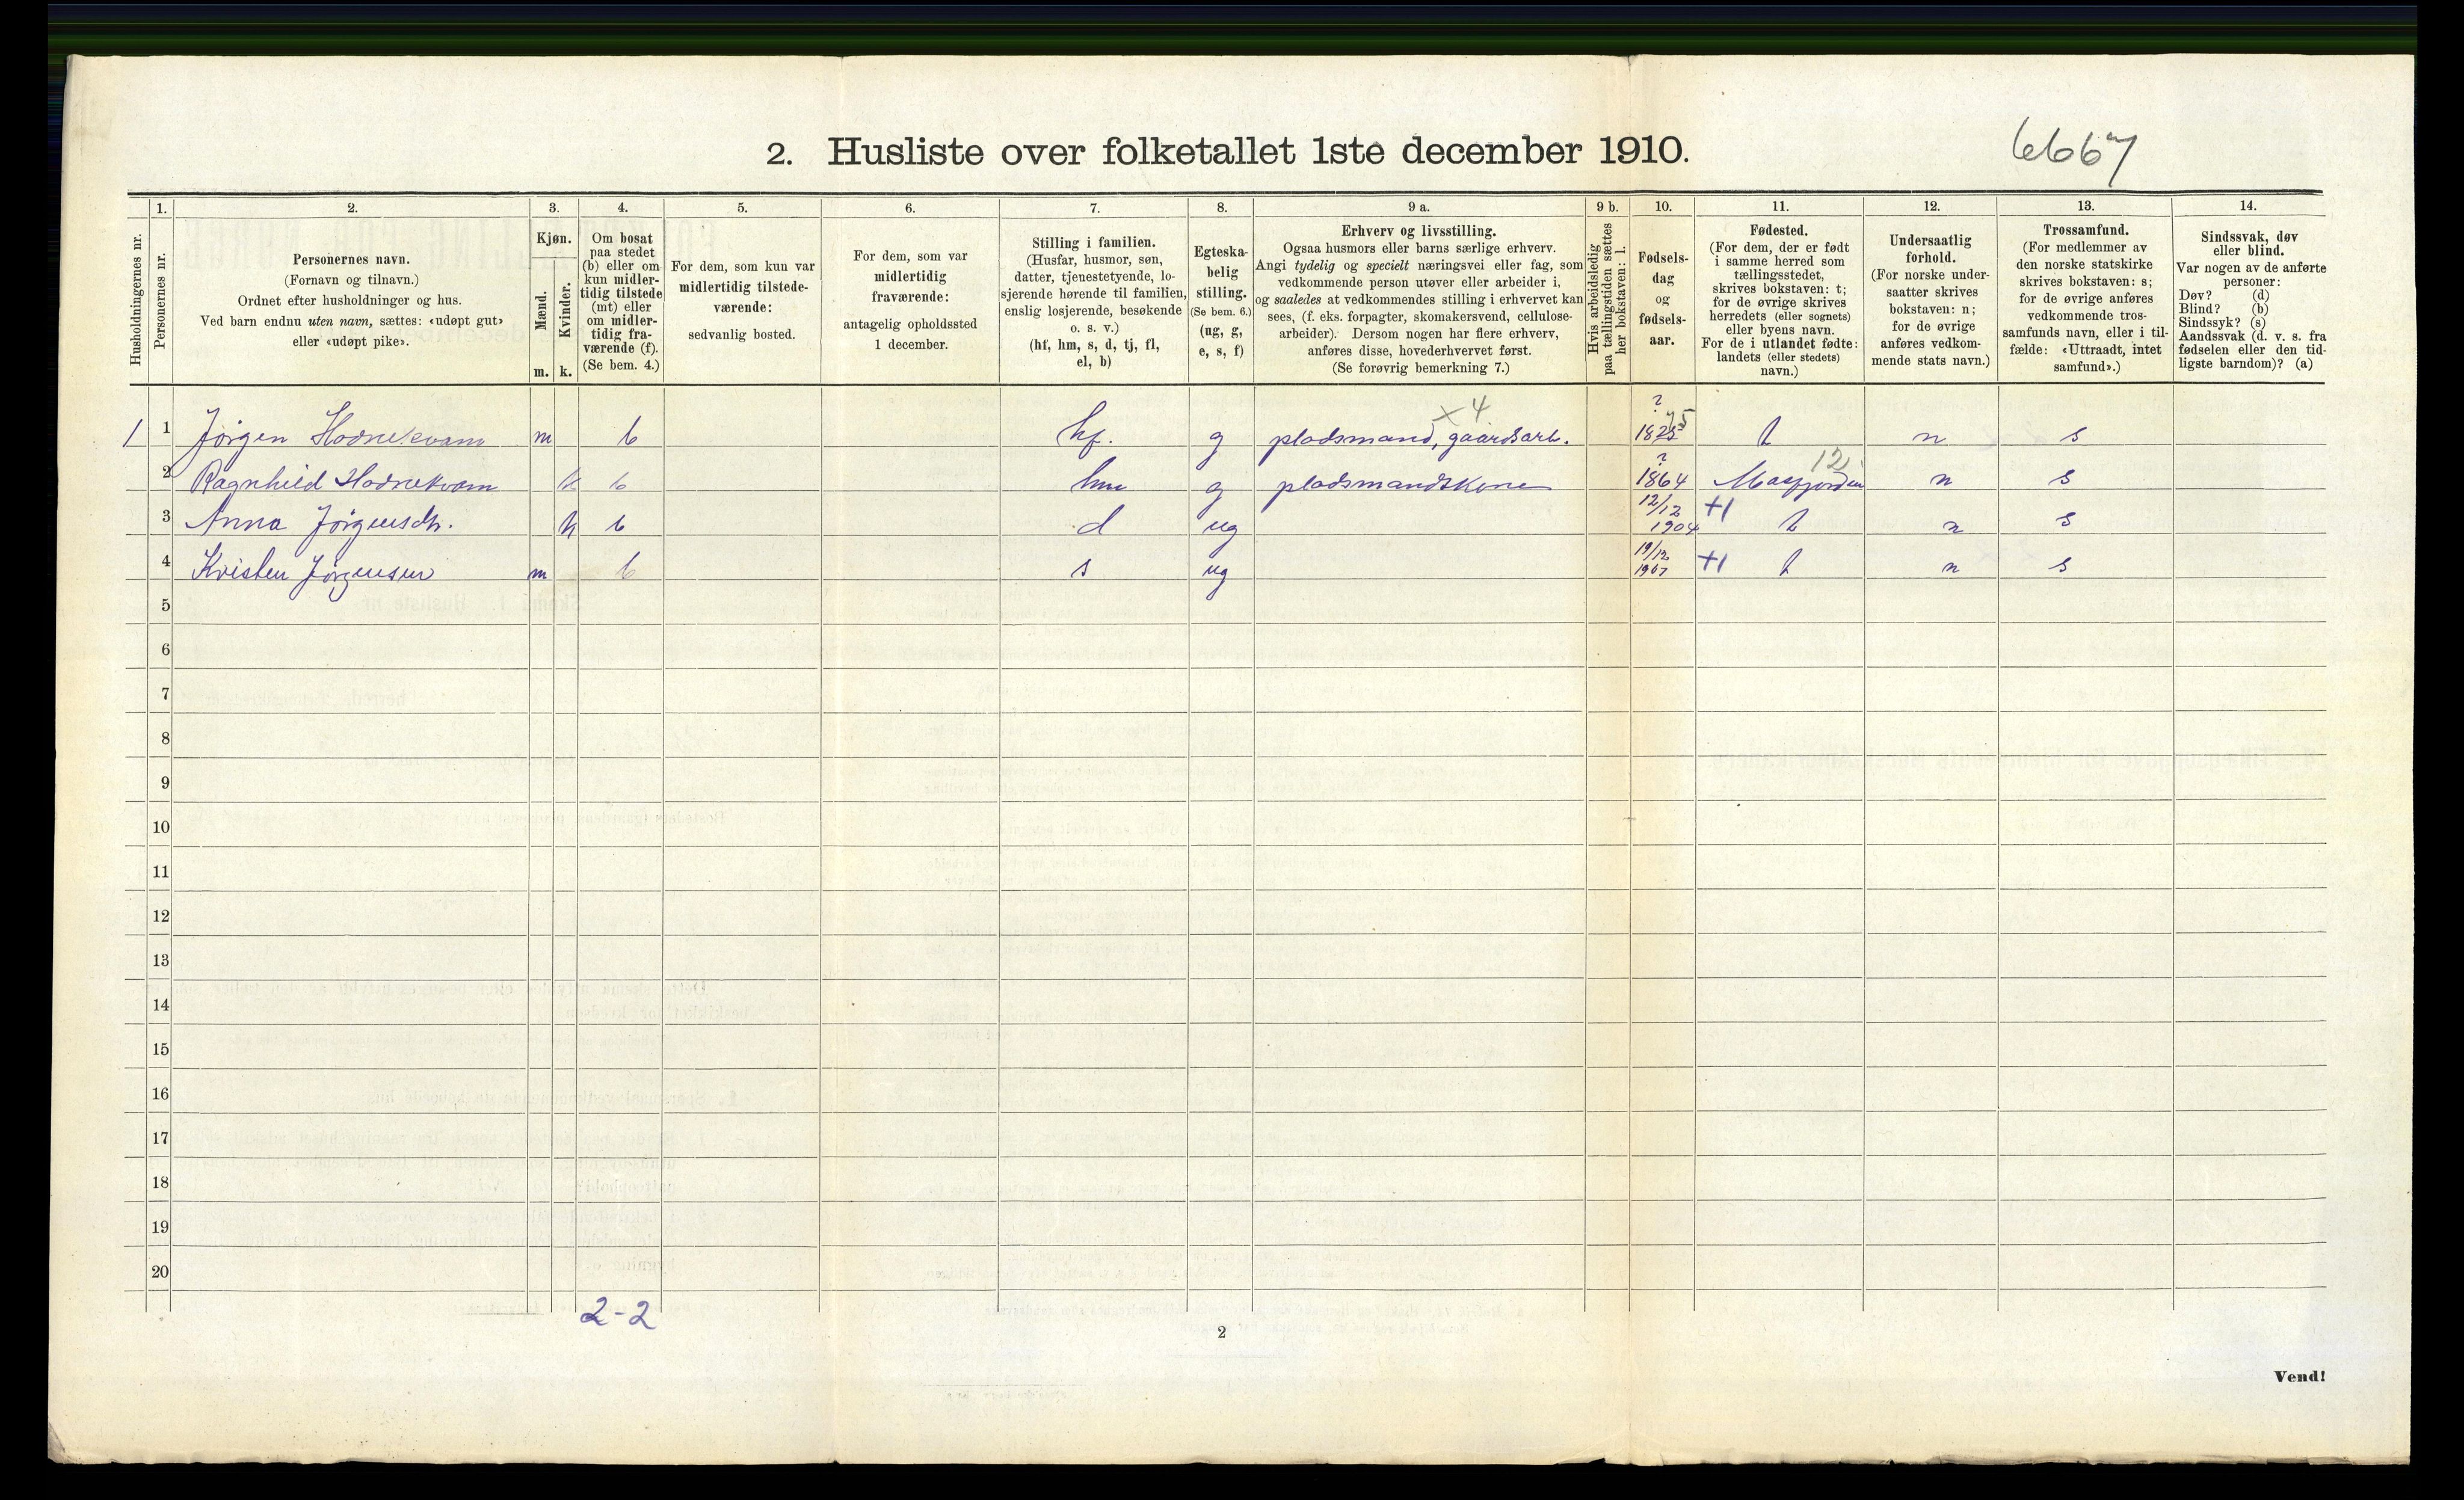 2. Husliste over folketallet 1ste december 1910.
6667
1.
2.
3.
4.
5.
6.
7.
8.
9 a.
9 b.
10.
11.
12.
13.
14.
Husholdningernes nr.
Personernes nr.
Personernes navn.
(Fornavn og tilnavn.)
Ordnet efter husholdninger og hus.
Ved barn endnu uten navn, sættes: «udøpt gut»
eller «udøpt pike».
Kjøn.
Mænd.
Kvinder.
m. k.
Om bosat
paa stedet
(b) eller om
kun midler-
tidig tilstede
(mt) eller
om midler-
tidig fra-
værende (f).
(Se bem. 4.)
For dem, som kun var
midlertidig tilstede-
værende:
sedvanlig bosted.
For dem, som var
midlertidig
fraværende:
antagelig opholdssted
1 december.
Stilling i familien.
(Husfar, husmor, søn,
datter, tjenestetyende, lo-
sjerende hørende til familien,
enslig losjerende, besøkende
o. s. v.)
(hf, hm, s, d, tj, fl,
el, b)
Egteska-
belig
stilling.
(Se bem. 6.)
(ug, g,
e, s, f)
Erhverv og livsstilling.
Ogsaa husmors eller barns særlige erhverv.
Angi tydelig og specielt næringsvei eller fag, som
vedkommende person utøver eller arbeider i,
og saaledes at vedkommendes stilling i erhvervet kan
sees, (f. eks. forpagter, skomakersvend, cellulose-
arbeider). Dersom nogen har flere erhverv,
anføres disse, hovederhvervet først.
(Se forøvrig bemerkning 7.)
Hvis arbeidsledig
paa tællingstiden sættes
her bokstaven: l.
Fødsels-
dag
og
fødsels-
aar.
Fødested.
(For dem, der er født
i samme herred som
tællingsstedet,
skrives bokstaven: t;
for de øvrige skrives
herredets (eller sognets)
eller byens navn.
For de i utlandet fødte:
landets (eller stedets)
navn.)
Undersaatlig
forhold.
(For norske under-
saatter skrives
bokstaven: n;
for de øvrige
anføres vedkom-
mende stats navn.)
Trossamfund.
(For medlemmer av
den norske statskirke
skrives bokstaven: s;
for de øvrige anføres
vedkommende tros-
samfunds navn, eller i til-
fælde: «Uttraadt, intet
samfund».)
Sindssvak, døv
eller blind.
Var nogen av de anførte
personer:
Døv? (d)
Blind? (b)
Sindssyk? (s)
Aandssvak (d. v. s. fra
fødselen eller den tid-
ligste barndom)? (a)
x 4
?
1 1 Jørgen Hodnekvam m b hf. g pladsmand, gaardsarb. t n s
12
?
2 Ragnhild Hodnekvam k b hm g pladsmandskone 1864 Masfjorden n s
12/12
3 Anna Jørgensdtr. k b d ug 1904 +1 t n s
19/12
4 Kristen Jørgensen m b s ug 1907 +1 t n s
5
6
7
8
9
10
11
12
13
14
15
16
17
18
19
20
2-2
2
Vend!